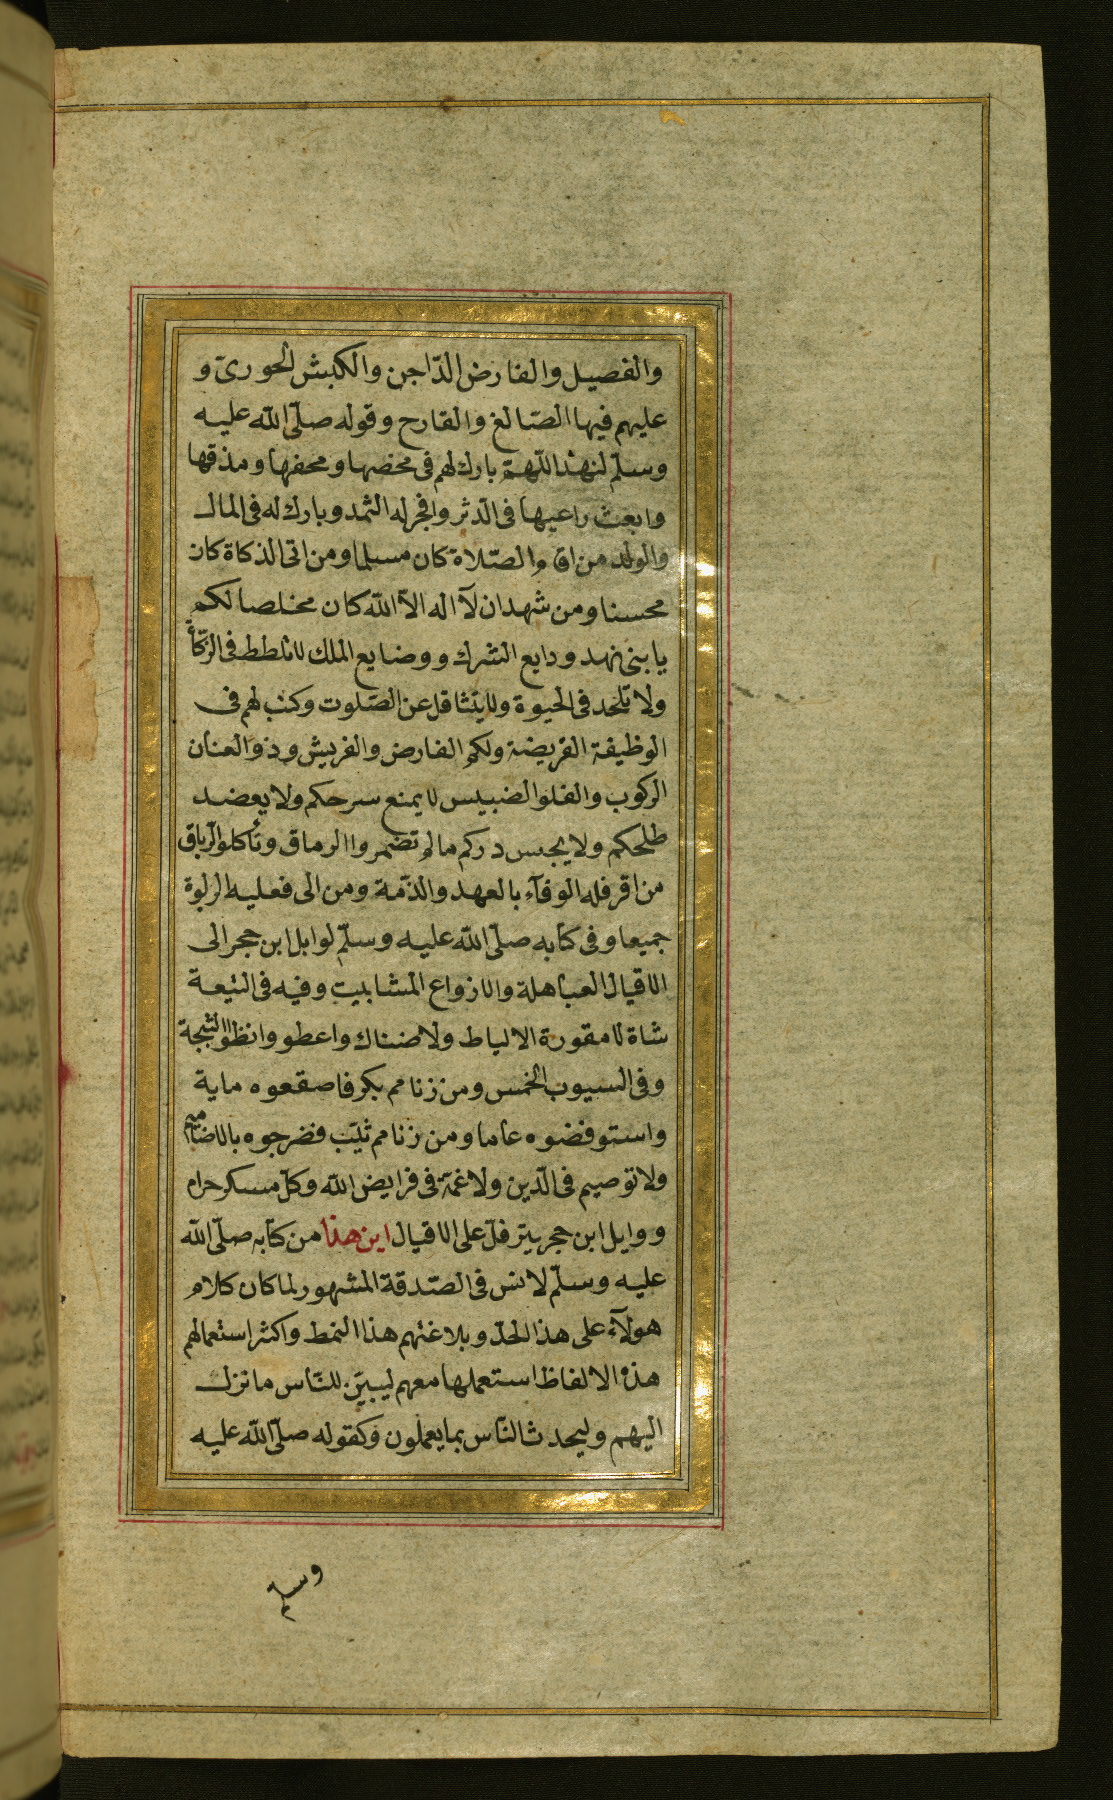 والفصيل والفارض الدّاجن والكبش الحورىّ و
عليهم فيها الصّالغ والقارح وقوله صلّى الله عليه
وسلّم لنهد اللّهمّ بارك لهم فى محضها ومحفها ومذقها
وابعث راعيها فى الدّثر وافجر له الثمد وبارك له فى المال
والولد من اقام الصّلاة كان مسلما ومن اتى الذكاة كان
محسنا ومن شهد ان لآ اله الاّ الله كان مخلصا لكم
يا بنى نهد ودايع الشرك ووضايع الملك لا تلطط فى الزّكاة
ولا تلحد فى الحيوة ولا يتثاقل عن الصّلوت وكتب لهم فى
الوظيفة الفريضة ولكم الفارض والفريش وذو العنان
الركوب والفلو الضبيس لا يمنع سرحكم ولا يعضد
طلحكم ولا يحبس دركم ما لم تضمروا الرماق وتأكلوا الرباق
من اقر فله الوفآء بالعهد والذّمة ومن الى فعليه الربوة
جميعا وفى كتابه صلّى الله عليه وسلّم لوايل ابن حجر الى
الاقيال العباهلة والازواع المشابيب وفيه فى التيعة
شاة لا مقورة الالياط ولا ضناك واعطوو انظوا الثبجة
وفى السيوب الخمس ومن زنا مم بكر فاصقعوه ماية
واستوفضوه عاما ومن زنا مم ثيّب فضرجوه بالاضاميم
ولا توصيم فى الدّين ولا غمّة فى فرايض الله وكلّ مسكر حرام
ووايل ابن حجر يترفّل على الاقيال اين هذا من كتابه صلّى الله
عليه وسلّم لانس فى الصّدقة المشهور لما كان كلام
هولآء على هذا الحدّ وبلاغتهم هذا النمط واكثر استعمالهم
هذه الالفاظ استعملها معهم ليبيّن للنّاس ما نزل
اليهم وليحدث النّاس بما يعملون وكقوله صلّى الله عليه
وسلم